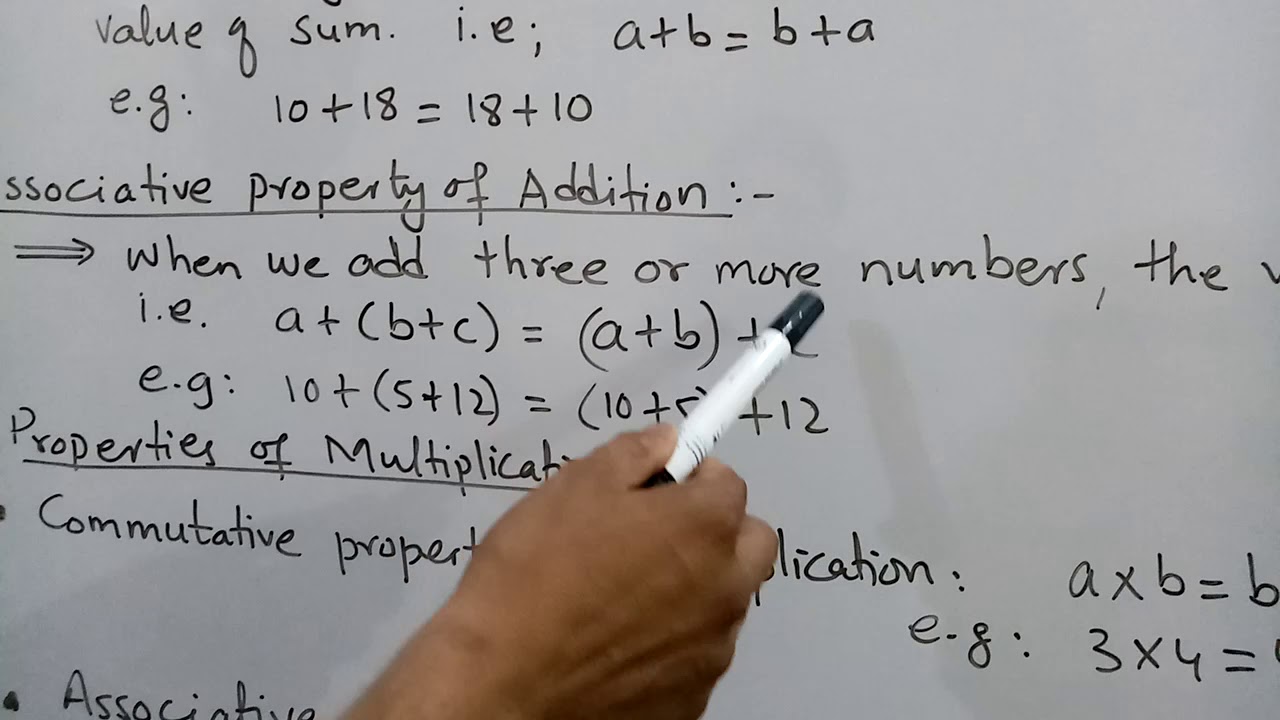 value of sum. i.e; a+b = b+a
e.g: 10+18 = 18+10
ssociative property of Addition :-
⟹ When we add three or more numbers, the
i.e. a+(b+c) = (a+b)+
e.g: 10+(5+12) = (10+5)+12
Properties of Multiplicati
• Commutative propert plication: a×b = b
e.g: 3×4 =
• Associative